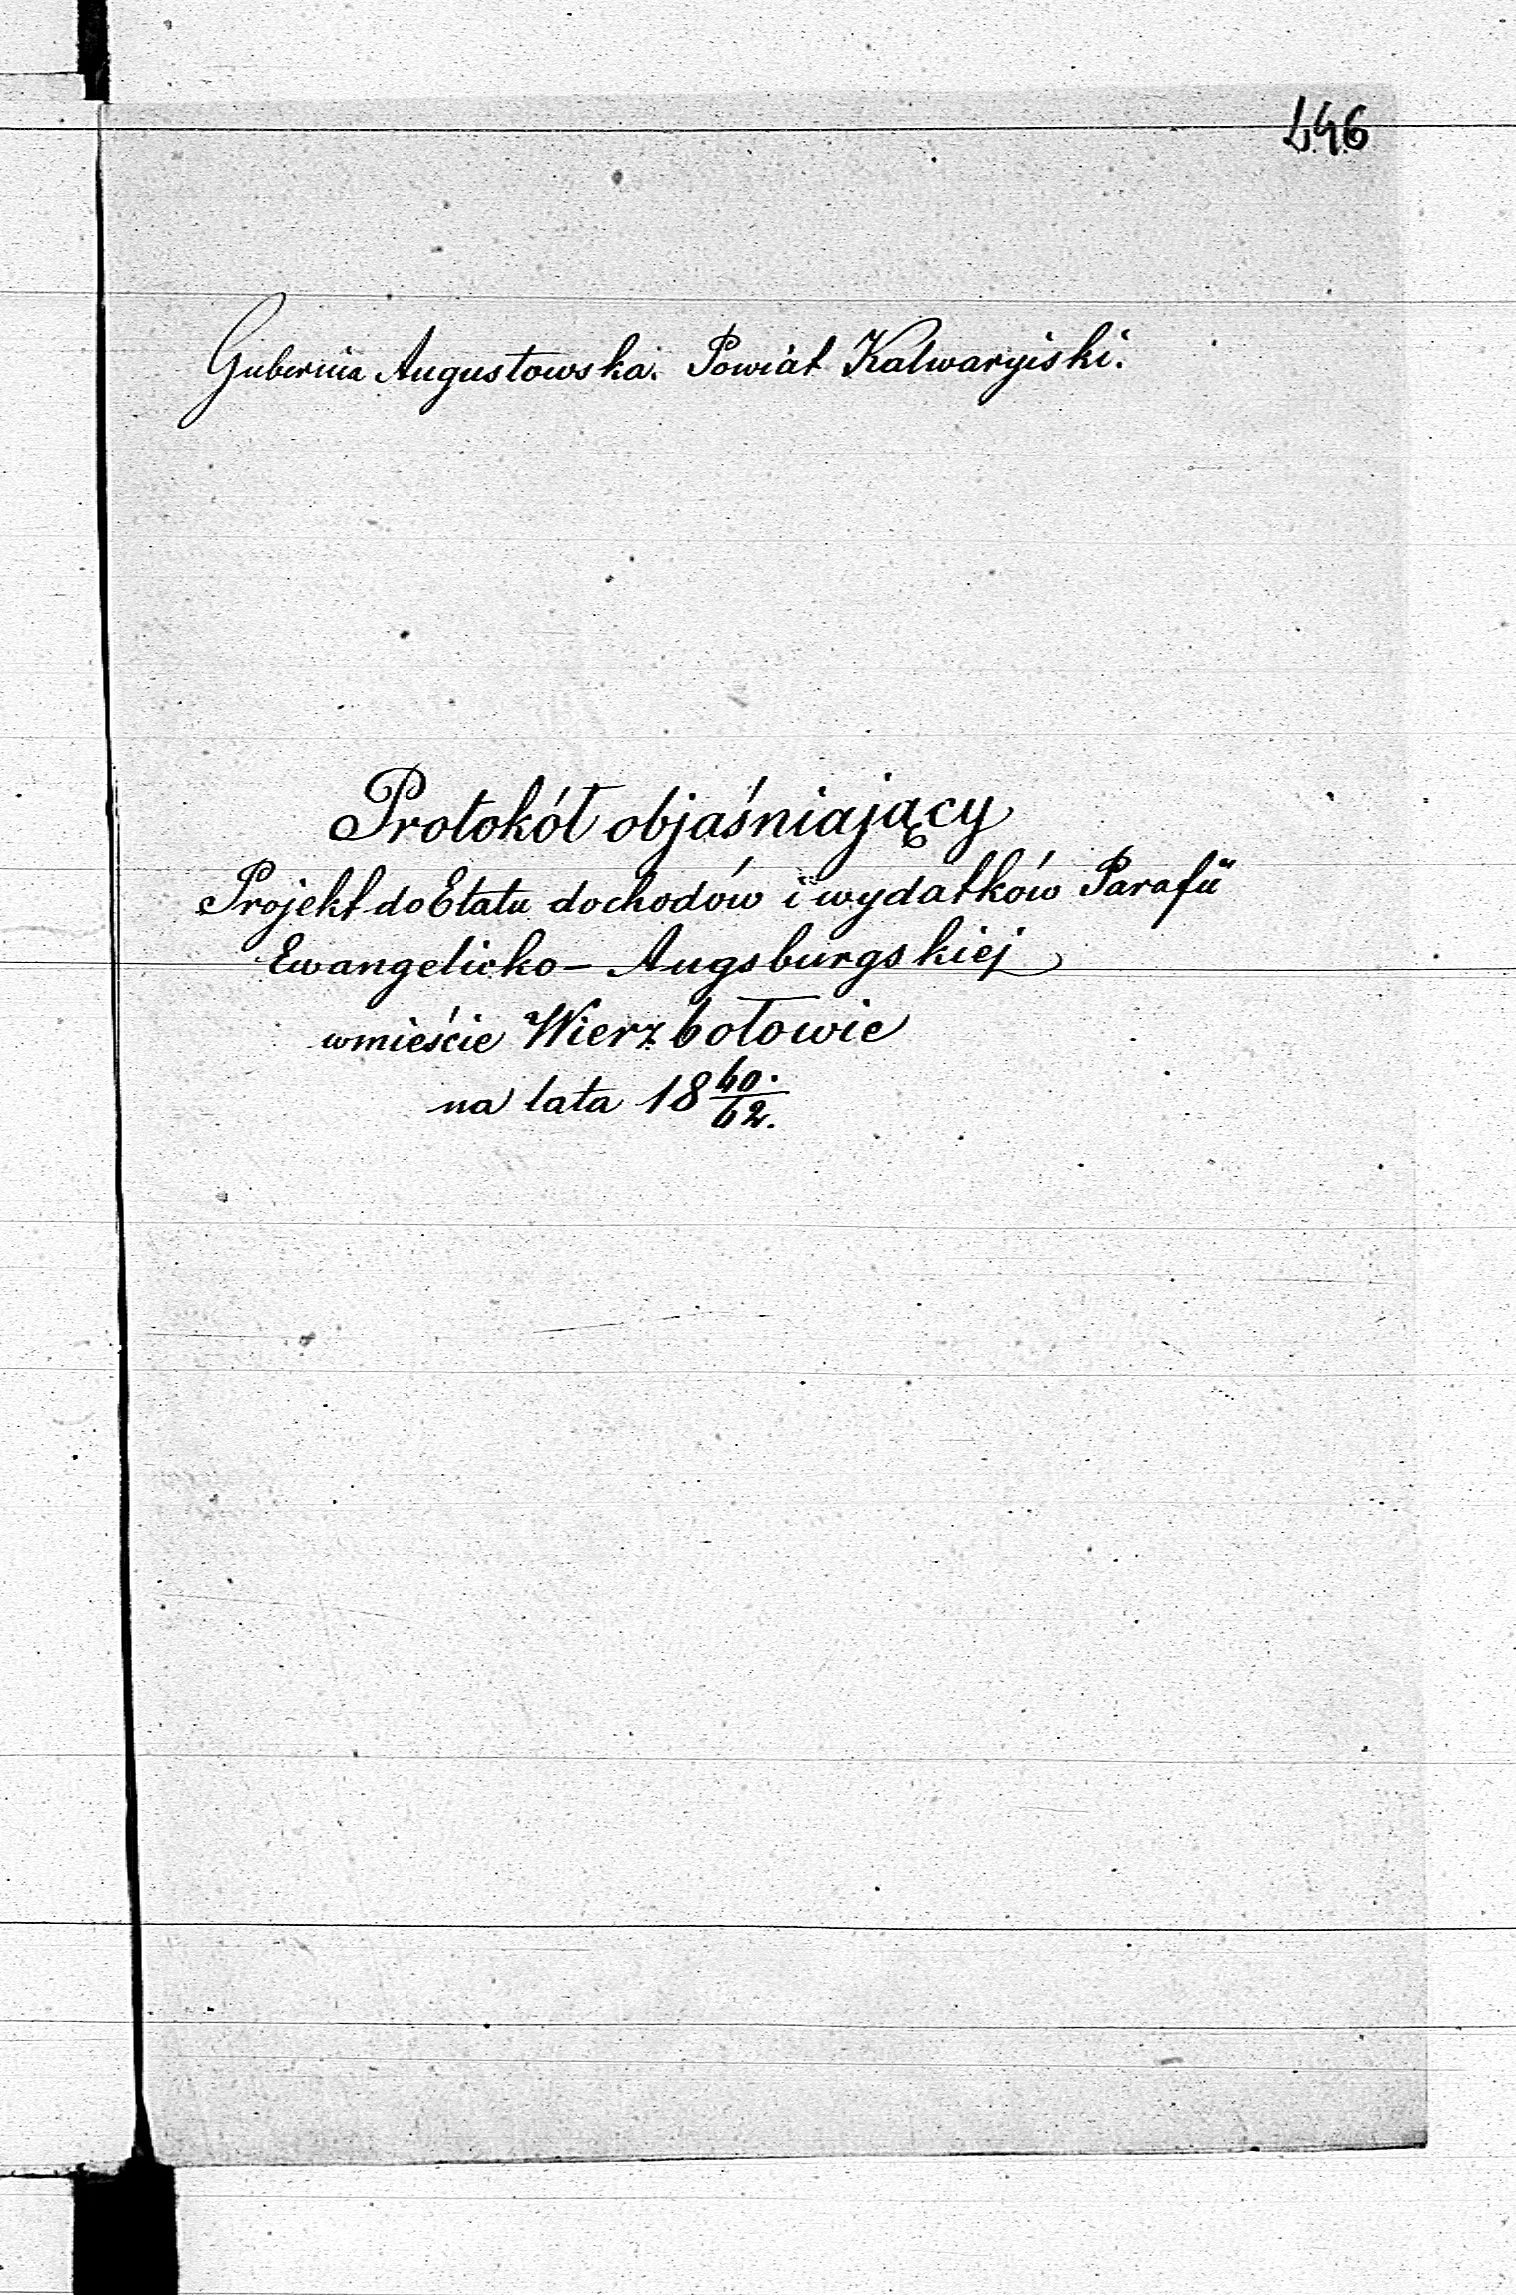 446
Gubernia Augustowska. Powiat Kalwaryiski.
Protokół objaśniający
Projekt do Etatu dochodów i wydatków Parafii
Ewangelicko - Augsburgskiej
w mieście Wierzbołowie
na lata 18 60./62.